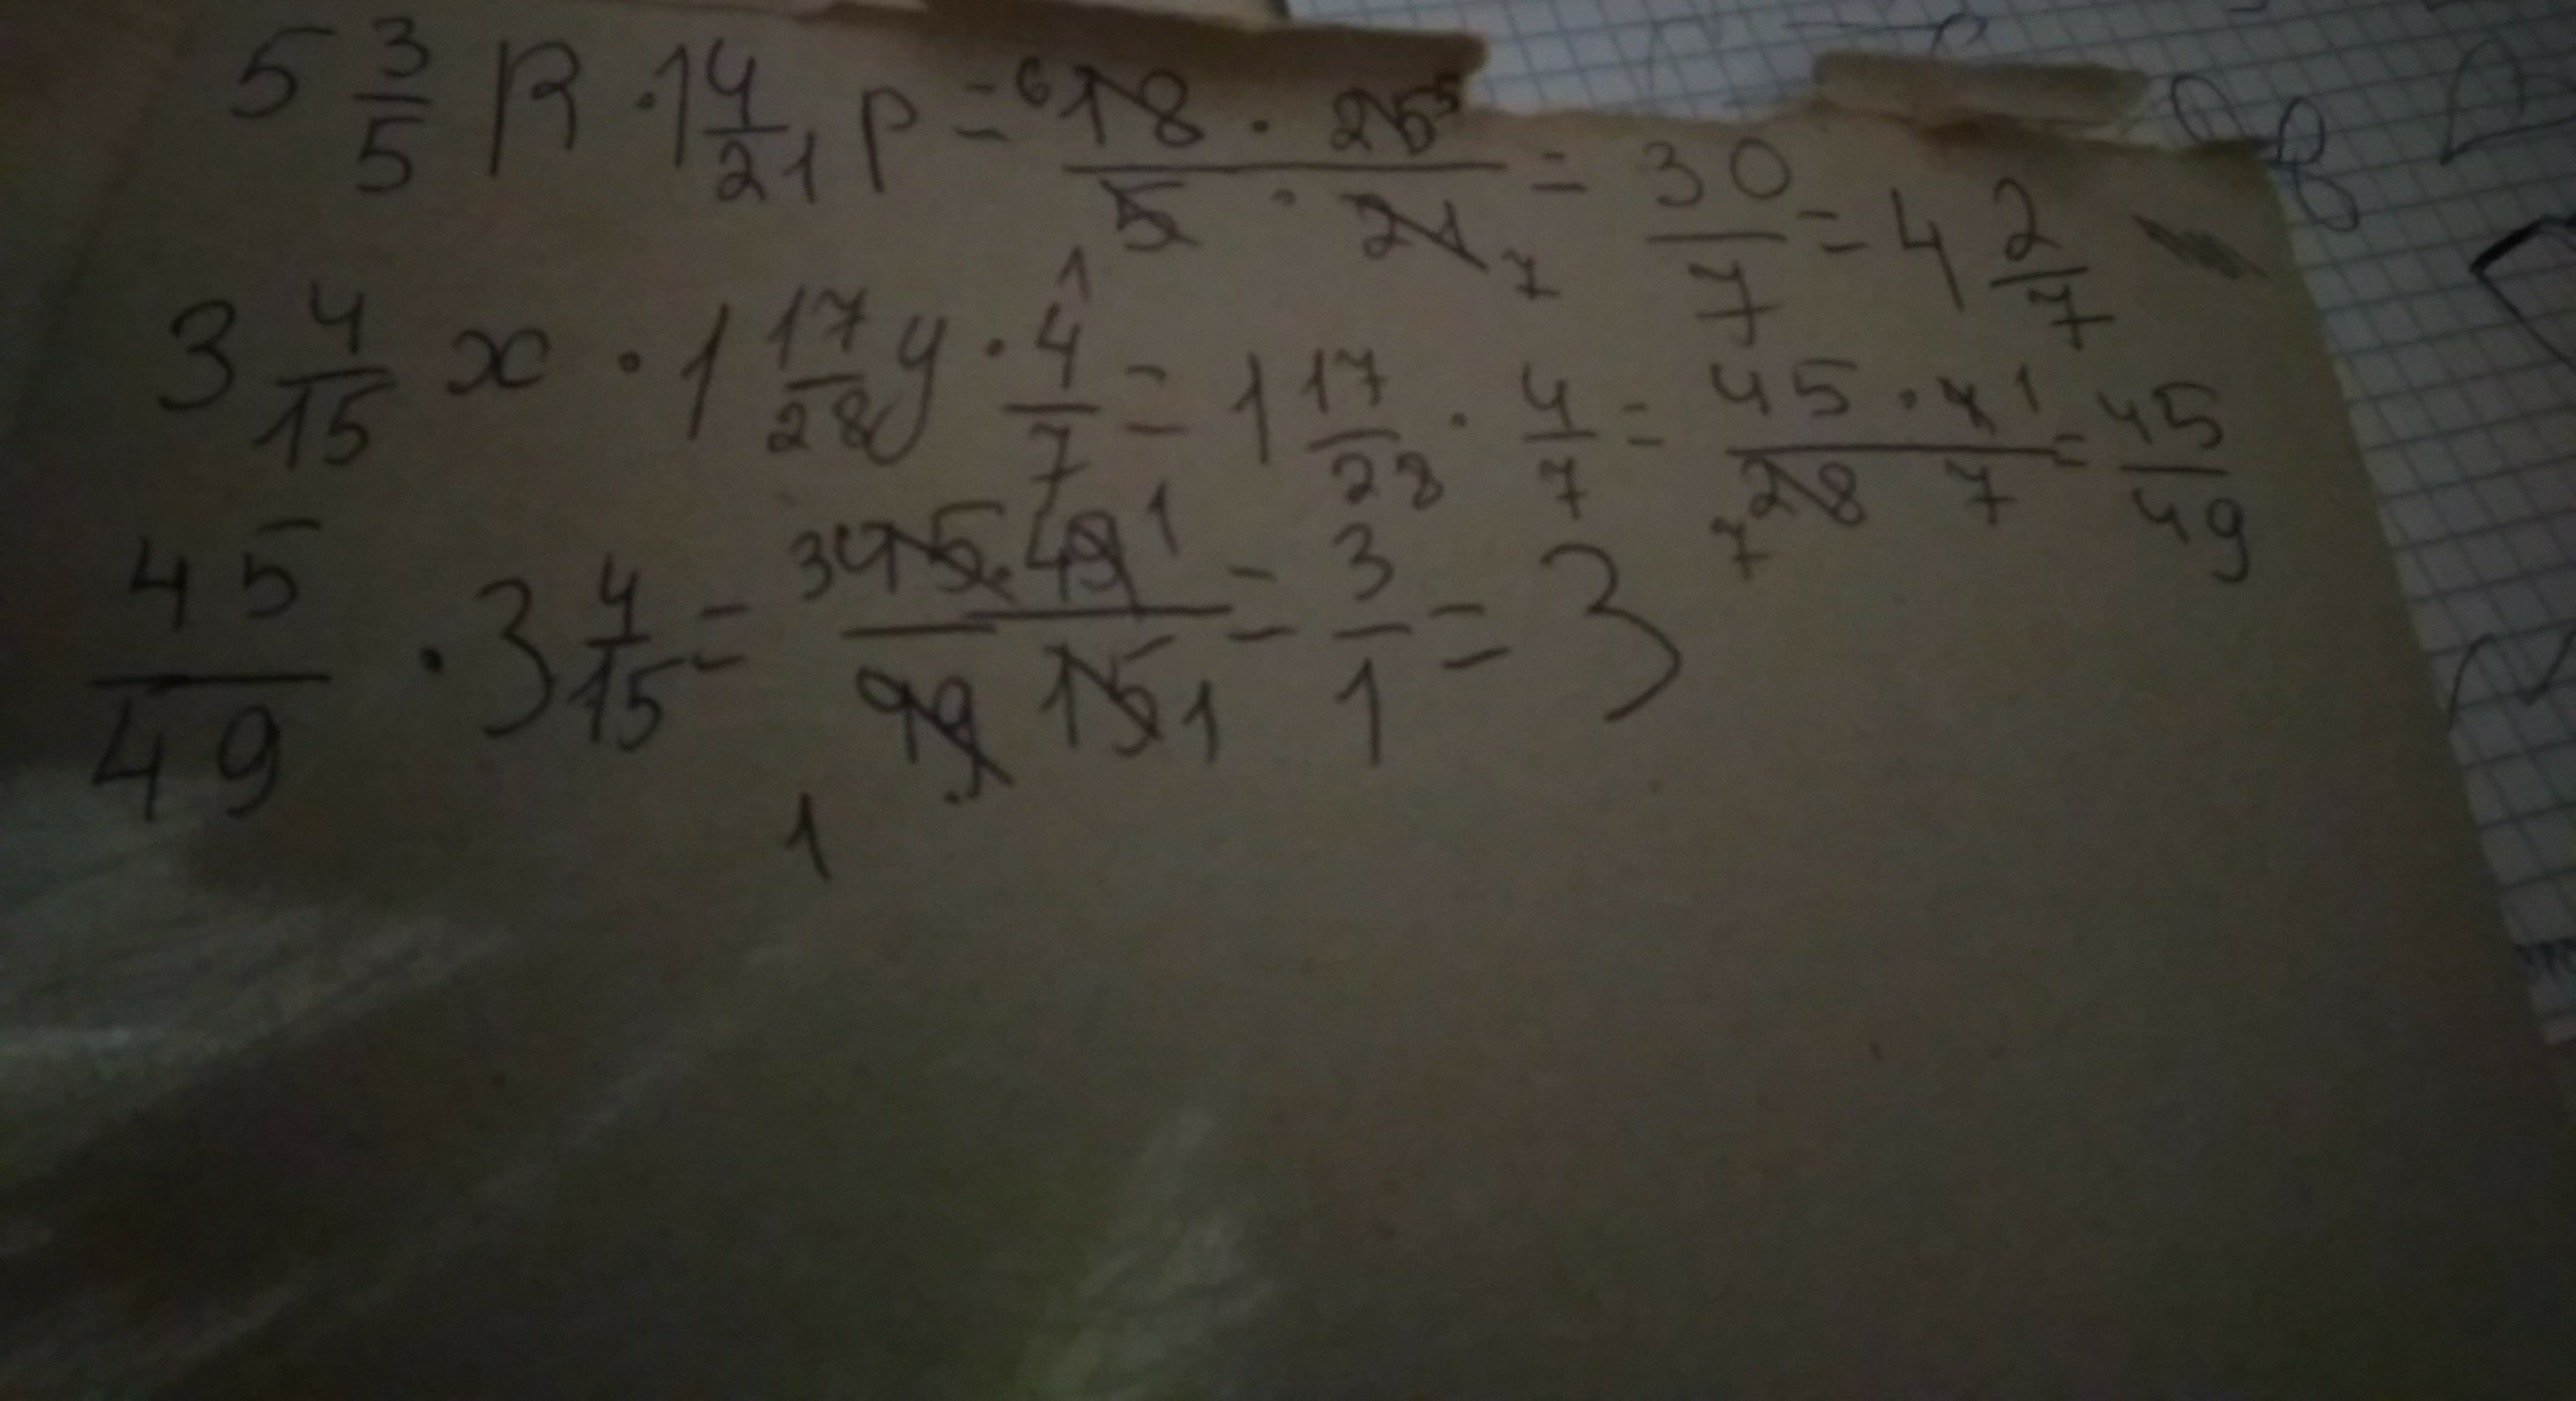 5 3/5 R · 1 4/21 p = 6 18 · 25 5 / 5 · 21 7 = 30/7 = 4 2/7
3 4/15 x · 1 17/28 y · 4/7 = 1 17/28 · 4/7 = 45 · 4 1 / 7 28 7 = 45/49
45/49 · 3 4/15 = 3 45 · 49 1 / 1 49 15 1 = 3/1 = 3